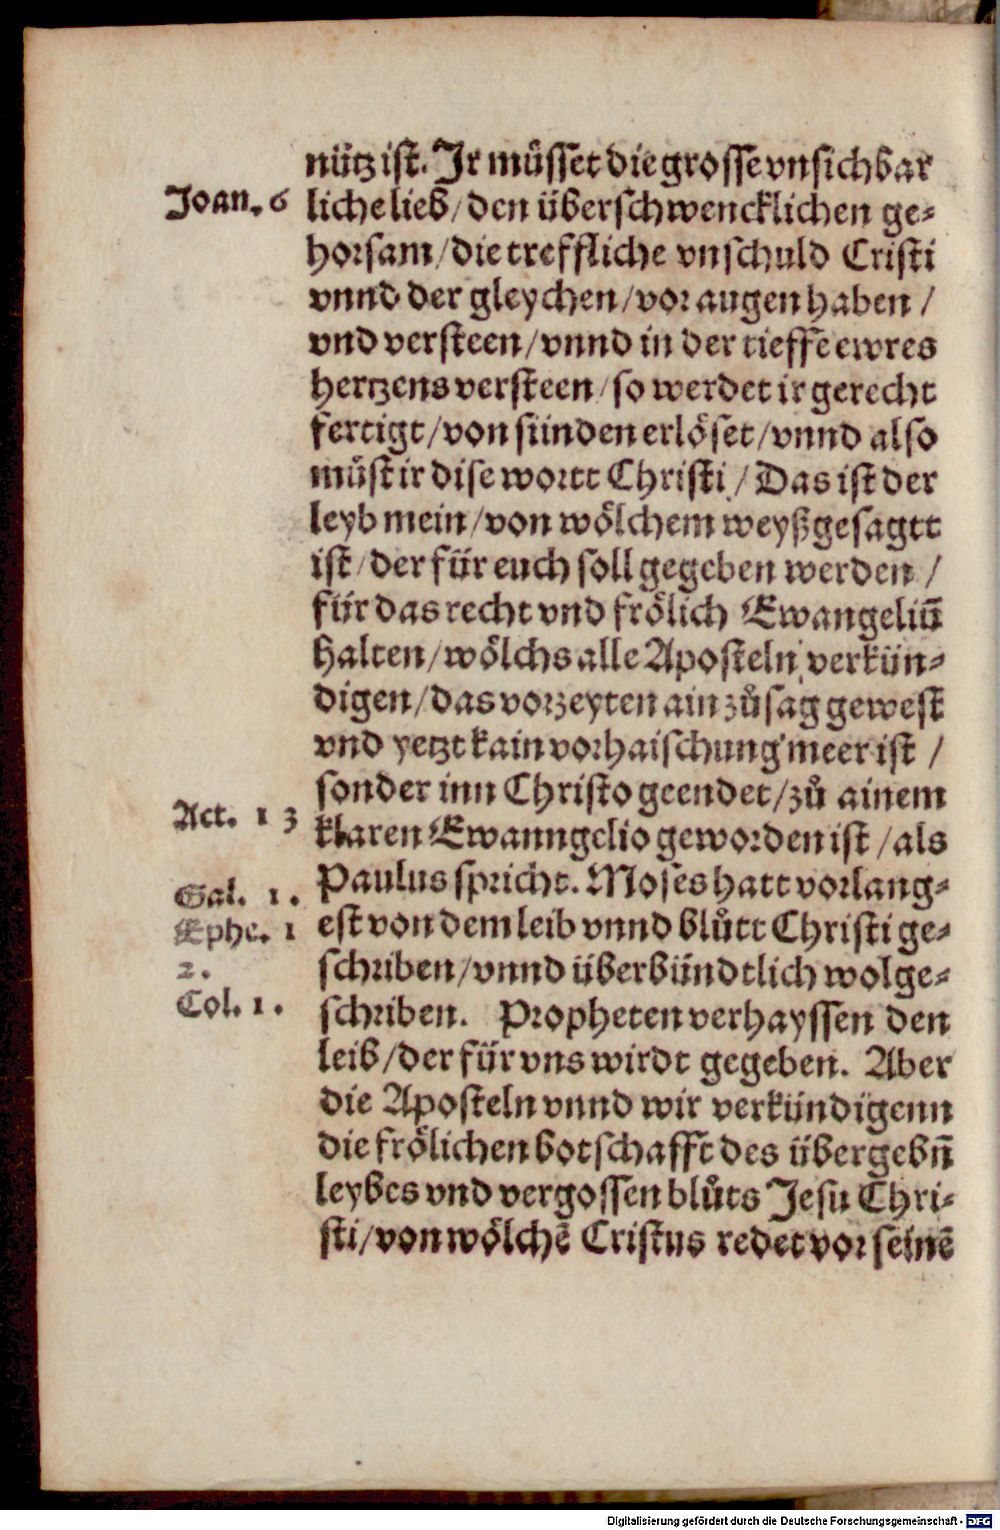 nütz ist. Jr müsset die grosse vnsichbar
Joan. 6
liche lieb/ den überschwencklichen ge⸗
horsam/ die treffliche vnschuld Cristi
vnnd der gleychen/ vor augen haben/
vnd versteen/ vnnd in der tieffe ewres
hertzens versteen/ so werdet ir gerecht
fertigt/ von sünden erlöset/ vnnd also
müst ir dise wortt Christi/ Das ist der
leyb mein/ von wölchem weyßgesagtt
ist/ der für euch soll gegeben werden/
für das recht vnd frölich Ewangeliū
halten/ wölchs alle Aposteln verkün⸗
digen/ das vorzeyten ain zůsag gewest
vnd yetzt kain vorhaischung meer ist/
sonder inn Christo geendet/ zů ainem
Act. 13
klaren Ewanngelio geworden ist/ als
Gal. 1.
Paulus spricht. Moses hatt vorlang⸗
Ephe. 1
est von dem leib vnnd blůtt Christi ge⸗
2.
schriben/ vnnd überbündtlich wol ge⸗
Col. 1.
schriben. Propheten verhayssen den
leib/ der für vns wirdt gegeben. Aber
die Aposteln vnnd wir verkündigenn
die frölichen botschafft des übergebn̄
leybes vnd vergossen blůts Jesu Chri⸗
sti/ von wölchē Cristus redet vor seinē
Digitalisierung gefördert durch die Deutsche Forschungsgemeinschaft - DFG